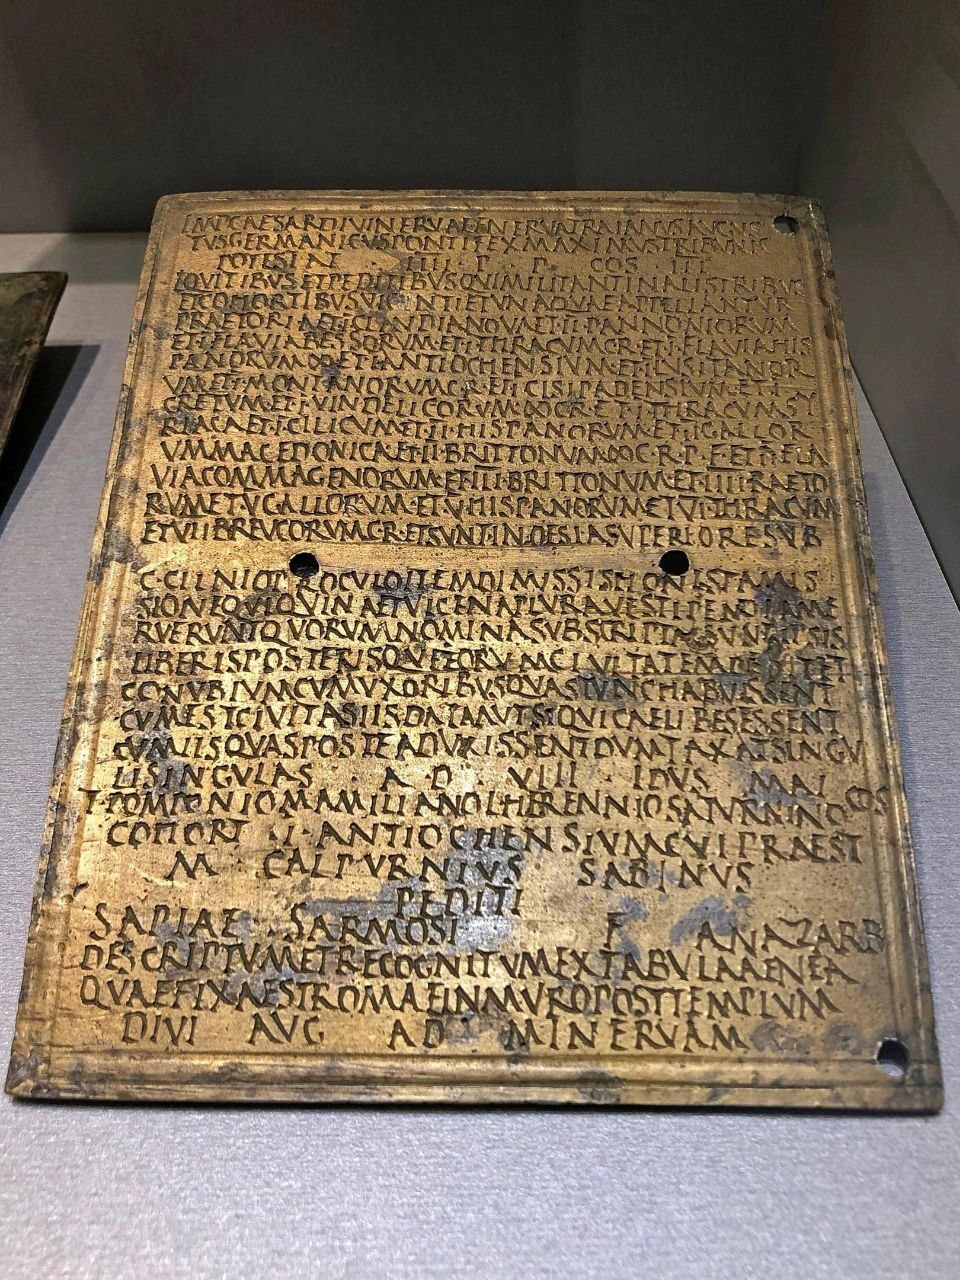 IMP CAESAR DIVI NERVAE F NERVA TRAIANVS AVGVS
TVS GERMANICVS PONTIFEX MAXIMVS TRIBVNIC
POTESTAT IIII P P COS III
EQVITIBVS ET PEDITIBVS QVI MILITANT IN ALIS TRIBVS
ET COHORTIBVS VIGINTI ET VNA QVAE APPELLANTVR
PRAETORIA ET I CLAVDIA NOVA ET II PANNONIORVM
ET I FLAVIA BESSORVM ET I THRACVM C R ET I FLAVIA HIS
PANORVM ∞ ET I ANTIOCHENSIVM ET I LVSITANOR
VM ET I MONTANORVM C R ET I CISIPADENSIVM ET I
CRETVM ET I VINDELICORVM ∞ C R ET I THRACVM SY
RIACA ET I CILICVM ET II HISPANORVM ET II GALLOR
VM MACEDONICA ET II BRITTONVM ∞ C R P F ET II FLA
VIA COMMAGENORVM ET III BRITTONVM ET IIII RAETO
RVM ET V GALLORVM ET V HISPANORVM ET VI THRACVM
ET VII BREVCORVM C R ET SVNT IN MOESIA SVPERIORE SVB
C CILNIO PROCVLO ITEM DIMISSIS HONESTA MIS
SIONE QVI QVINA ET VICENA PLVRAVE STIPENDIA ME
RVERVNT QVORVM NOMINA SVBSCRIPTA SVNT IPSIS
LIBERIS POSTERISQVE EORVM CIVITATEM DEDIT ET
CONVBIVM CVM VXORIBVS QVAS TVNC HABVISSENT
CVM EST CIVITAS IIS DATA AVT SI QVI CAELIBES ESSENT
CVM IIS QVAS POSTEA DVXISSENT DVMTAXAT SINGV
LI SINGVLAS A D VIII IDVS MAI
T POMPONIO MAMILIANO L HERENNIO SATVRNINO COS
COHORT I ANTIOCHENSIVM CVI PRAEST
M CALPVRNIVS SABINVS
PEDITI
SAPIAE SARMOSI F ANAZARB
DESCRIPTVM ET RECOGNITVM EX TABVLA AENEA
QVAE FIXA EST ROMAE IN MVRO POST TEMPLVM
DIVI AVG AD MINERVAM